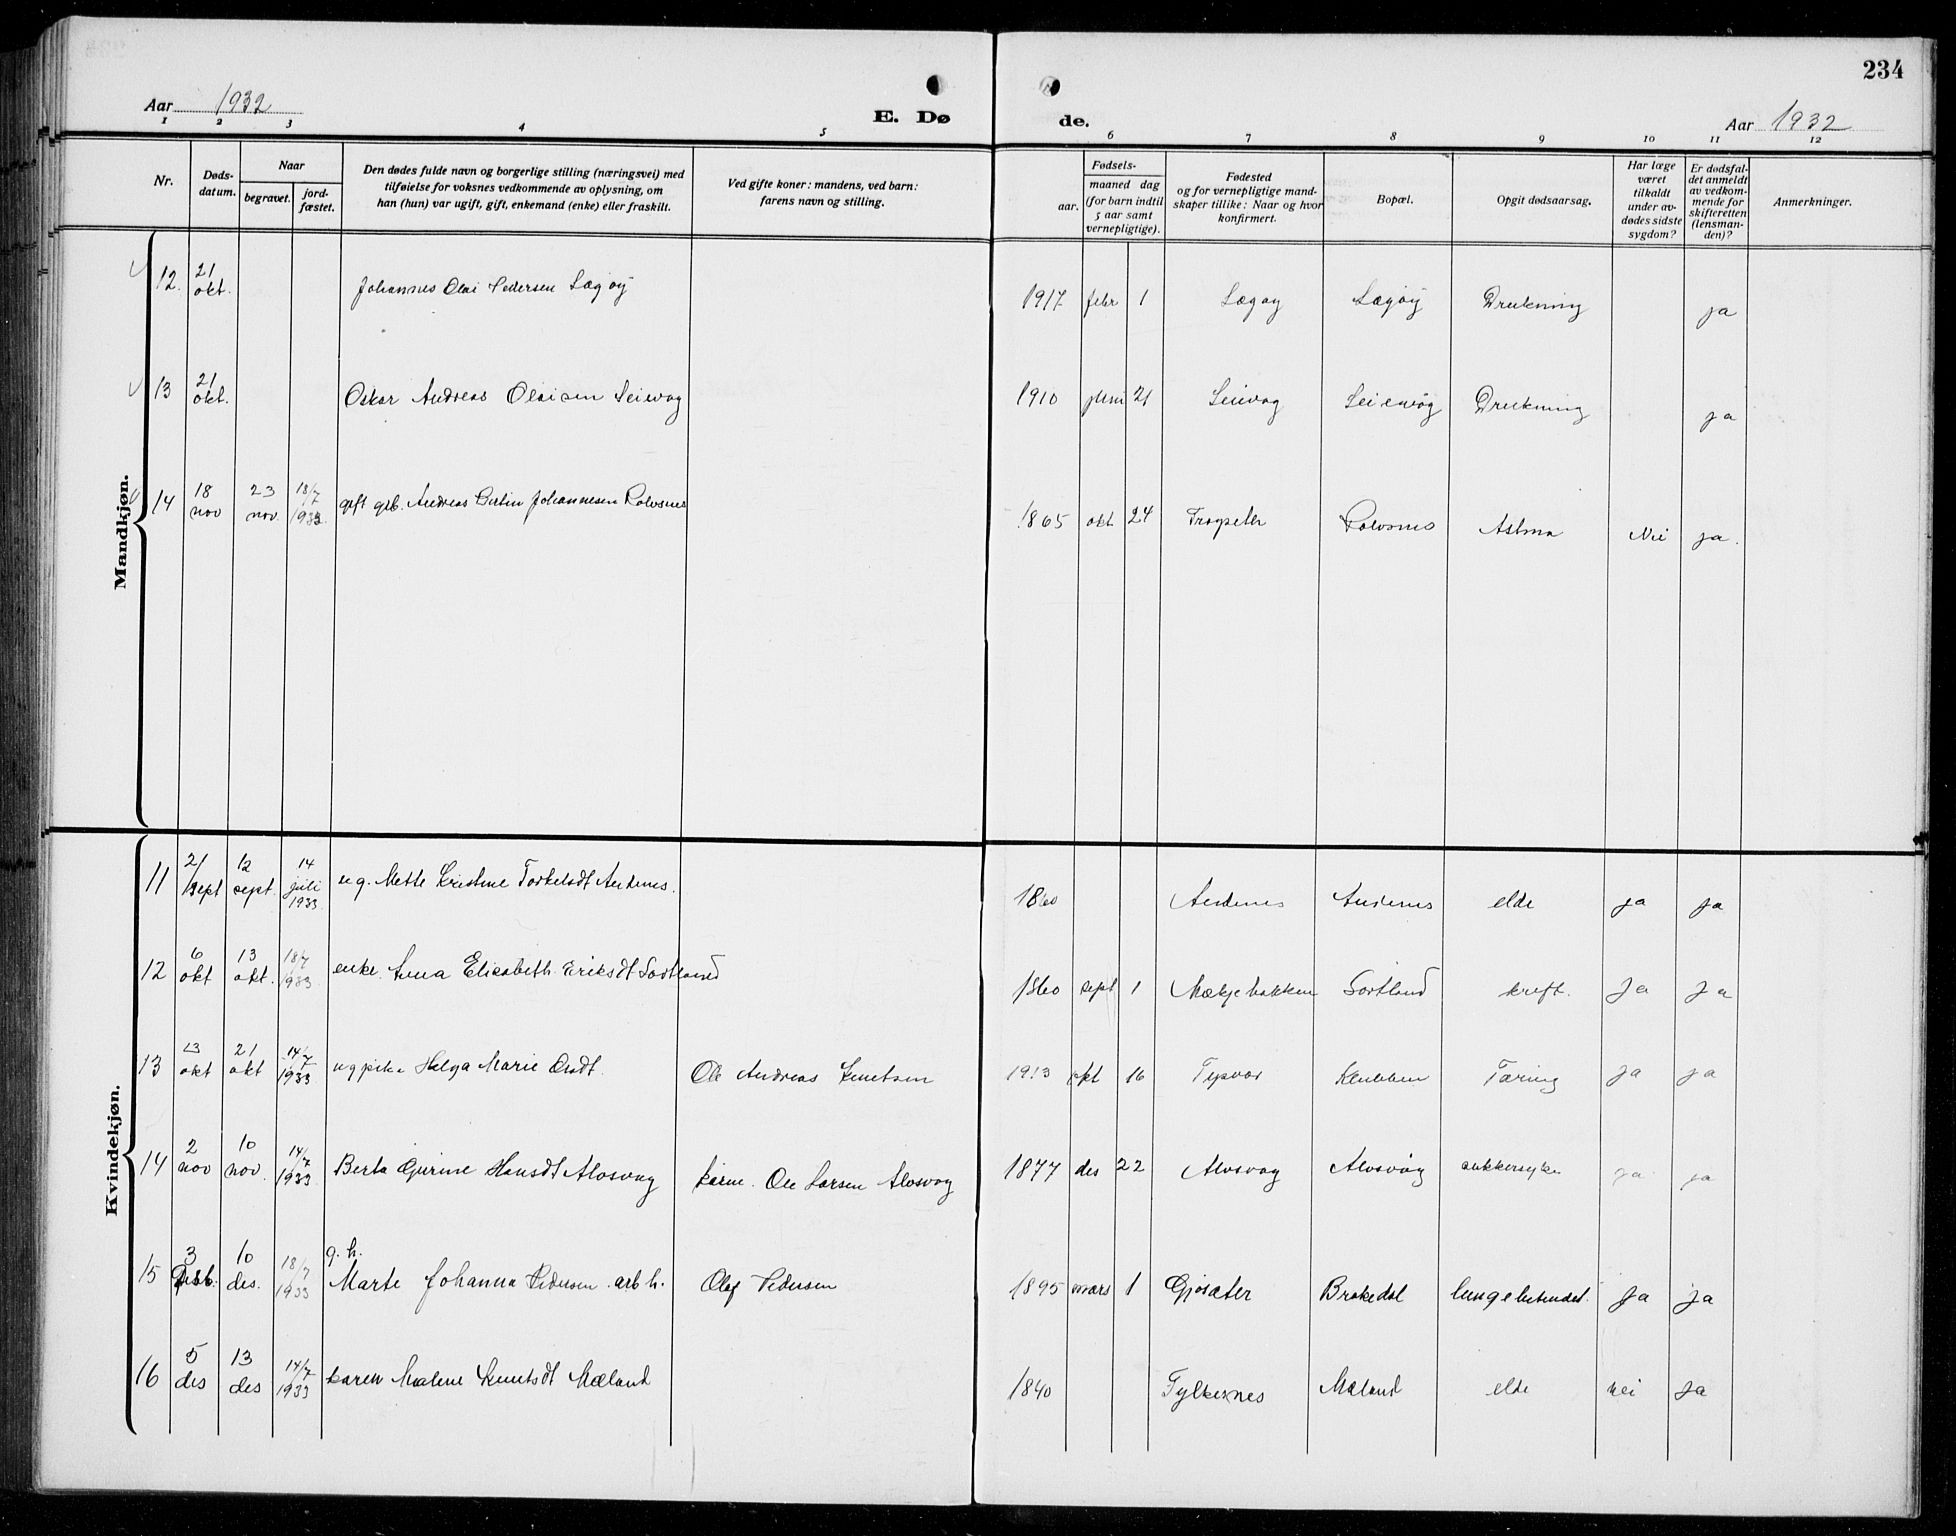 234
Aar 1932
E. Døde.
Aar 1932
1 2 3 4 5 6 7 8 9 10 11 12
Nr.
Døds-
datum.
Naar
begravet.
jord-
fæstet.
Den dødes fulde navn og borgerlige stilling (næringsvei) med
tilføielse for voksnes vedkommende av oplysning, om
han (hun) var ugift, gift, enkemand (enke) eller fraskilt.
Ved gifte koner: mandens, ved barn:
farens navn og stilling.
Fødsels-
aar.
maaned dag
(for barn indtil
5 aar samt
vernepligtige).
Fødested
og for vernepligtige mand-
skaper tillike: Naar og hvor
konfirmert.
Bopæl.
Opgit dødsaarsag.
Har læge
været
tilkaldt
under av-
dødes sidste
sygdom?
Er dødsfal-
det anmeldt
av vedkom-
mende for
skifteretten
(lensman-
den)?
Anmerkninger.
Mandkjøn.
12. 21 okt. Johannes Olai Pedersen Lægøy 1917 febr 1 Lægøy Lægøy Drukning ja
13 21 okt. Oskar Andreas Olaisen Seievåg 1910 21 Seievåg Drukning ja
14 18 nov 23 nov. 18/7 1933. gift Andreas Johannesen Rolvsnes 1865 okt. 24 Rolvsnes Astma Nei ja.
Kvindekjøn.
11 sept 12 sept. 14 juli 1933 ug. Mette Kristine Torkelsdt 1860 elde ja ja
12 6 okt 13 okt. 18/7 1933 enke. Anna Elisabeth Eriksdt Sortland 1860 sept 1 Mækjebakken Sortland kreft. Ja Ja
13 13 okt 21 okt 14/7 1933 ug pike Helga Marie Olsdt. Ole Andreas Knutsen 1913 okt 16 Tysvær Klubben Tæring Ja Ja
14 2 nov 10 nov. 14/7 1933 Berta Gurine Hansdt Alvsvåg kone. Ole Larsen Alvsvåg 1877 des 22 Alvsvåg Alvsvåg sukkersyke ja ja
15 3 10 des. 18/7 1933 g. h. Marte Johanna Pedersen arb h. Olaf Pedersen 1895 mars 1 Gjøsæter Brakedal lungebetendels. Ja ja
16 5 des 13 des 14/7 1933 Karen Malene Knutsdt Mæland 1840 Fylkesnes Mæland elde nei ja